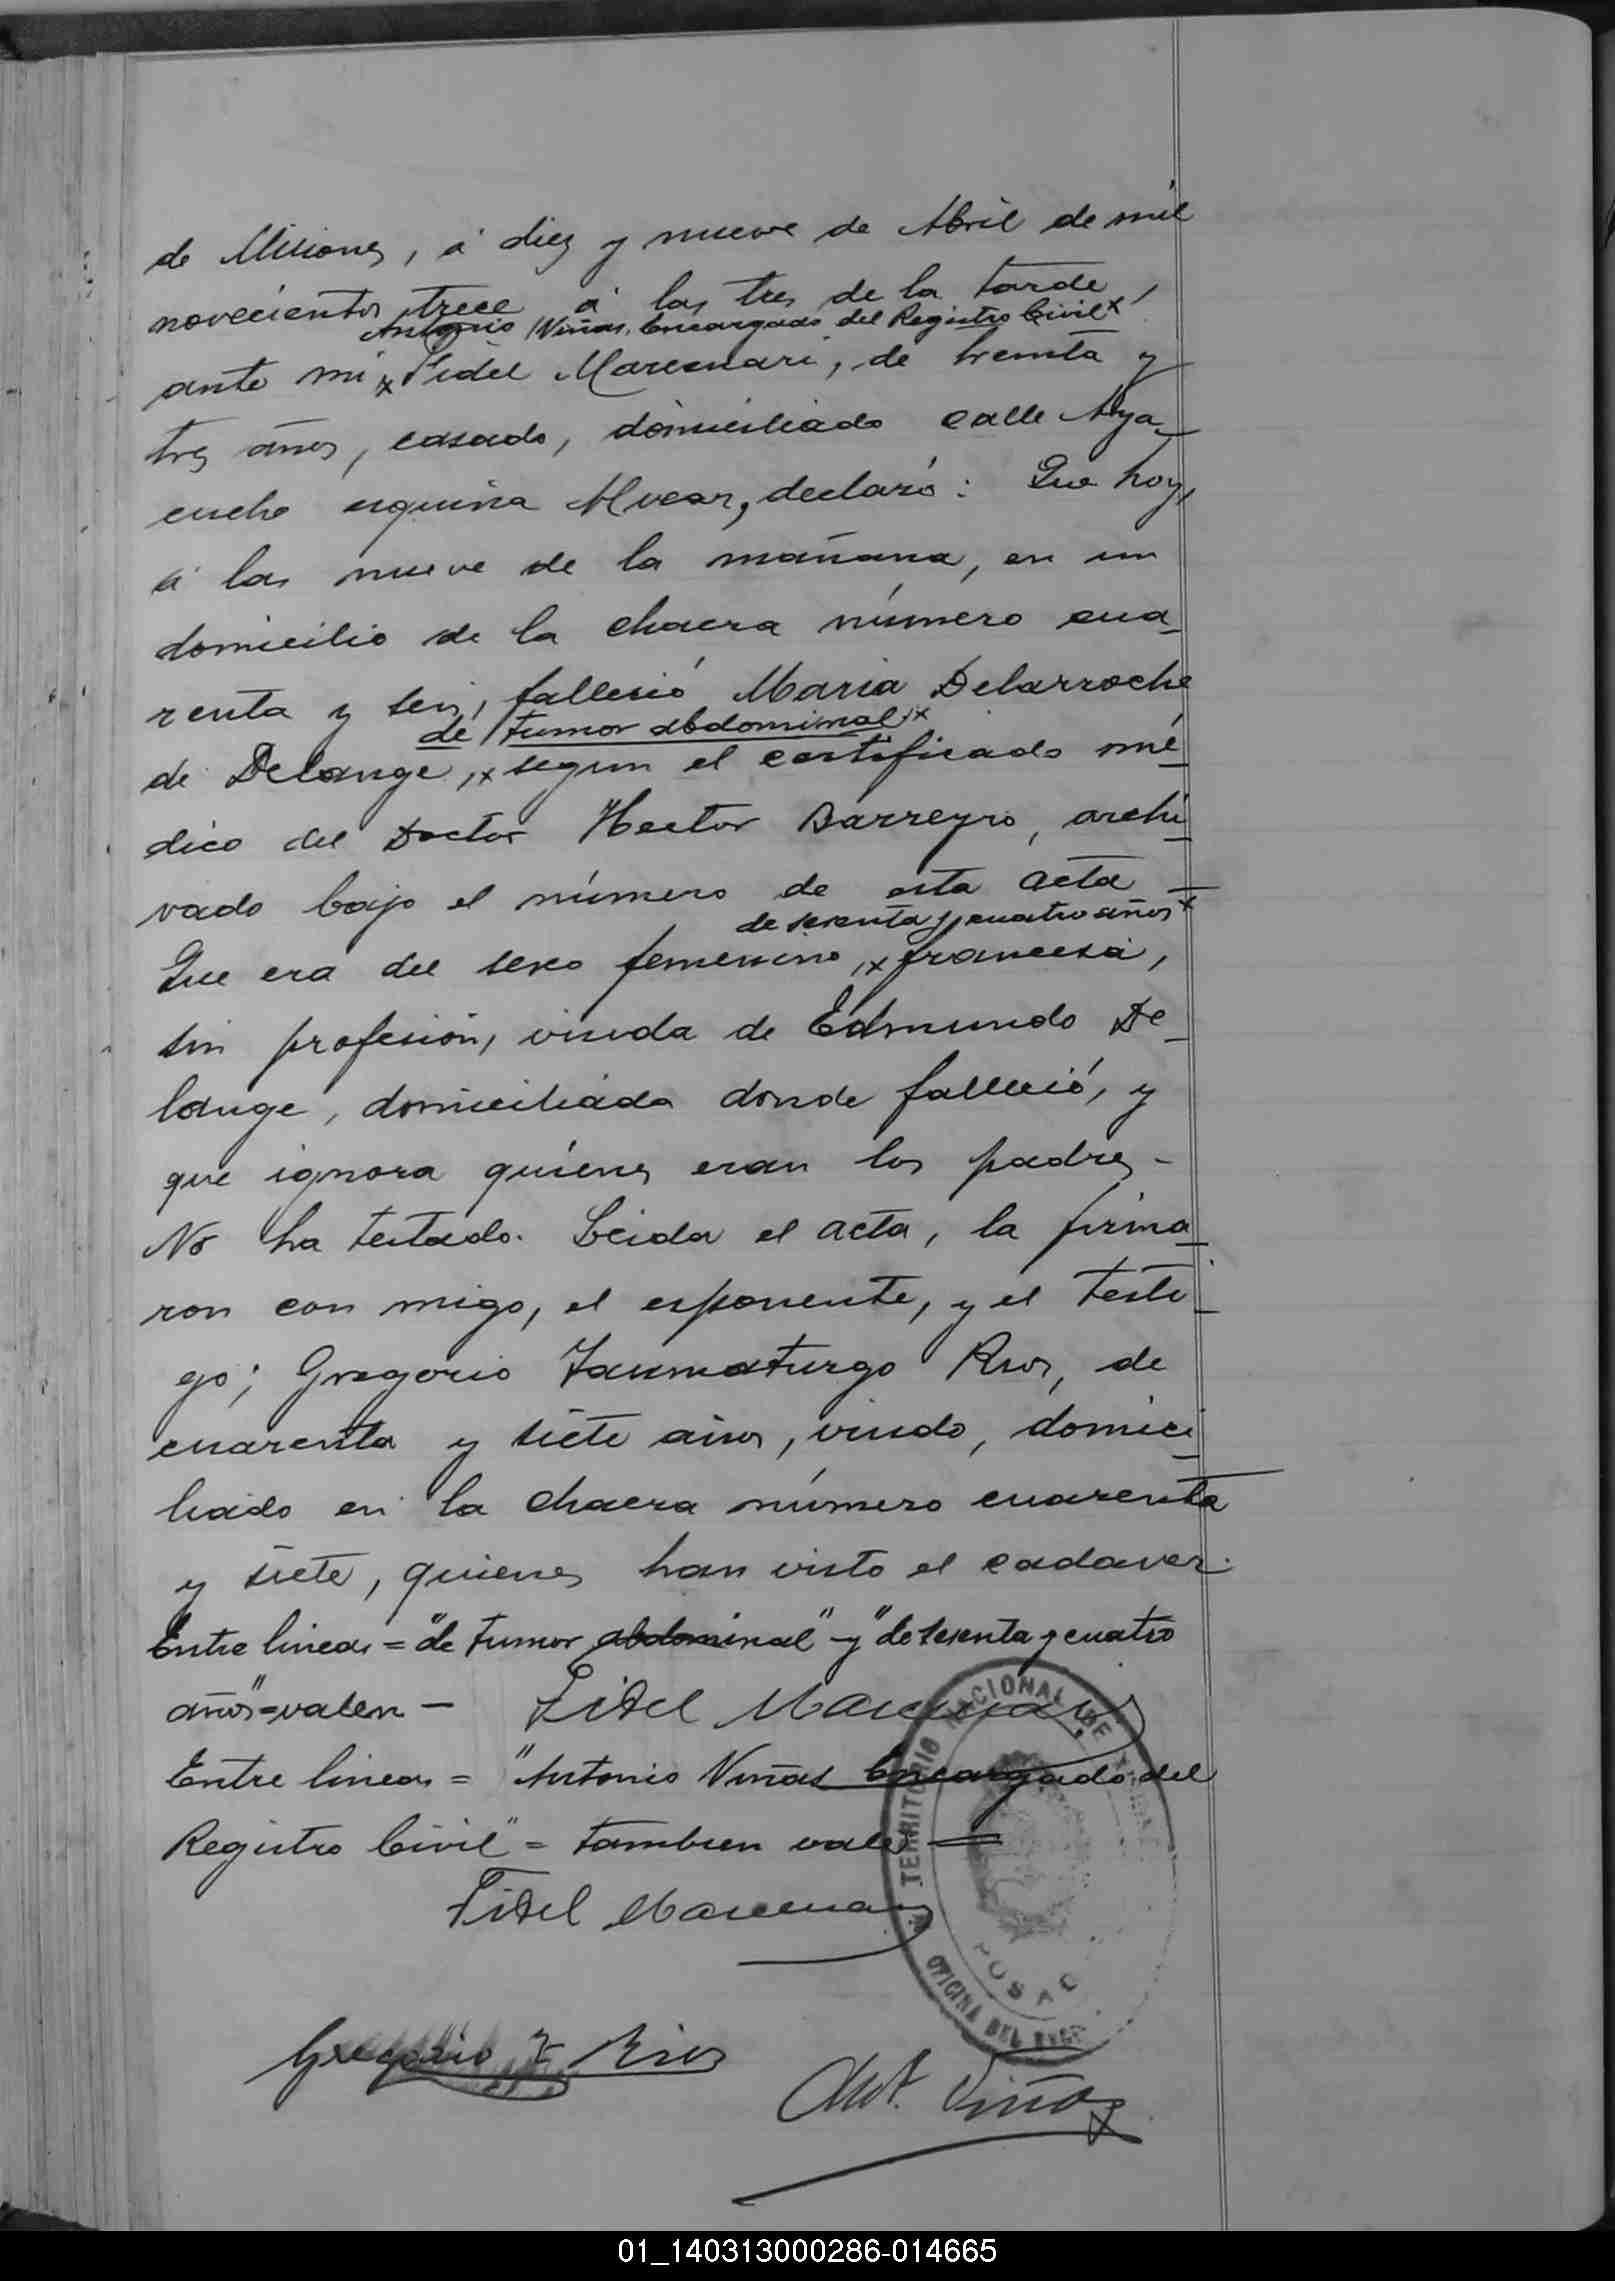 de Misiones, á diez y nueve de Abril de mil
novecientos trece á las tres de la tarde,
Antonio Viñas, Encargado del Registro Civil x
ante mi x Fidel Marennari, de treinta y
tres años, casado, domiciliado calle Aya_
cucho esquina Alvear, declaró: Que hoy,
á las nueve de la mañana, en un
domicilio de la chacra número cua_
renta y seis, falleció Maria Delarroche
de tumor abdominal x
de Delange, x segun el certificado mé_
dico del Doctor Hector Barreyro, archi_
vado bajo el número de esta acta —
de sesenta y cuatro años x
Que era del sexo femenino, x francesa,
sin profesión, viuda de Edmundo De_
lange, domiciliada donde falleció, y
que ignora quiénes eran los padres -
No ha testado. Leida el acta, la firma_
ron con migo, el esponente, y el testi_
go; Gregorio Taumaturgo Rios, de
cuarenta y siete años, viudo, domici_
liado en la chacra número cuarenta
y siete, quienes han visto el cadaver.
Entre lineas = "de tumor abdominal" - y "de sesenta y cuatro
años" = valen —
Fidel
Entre lineas = "Antonio Viñas Encargado del
Registro Civil" = tambien vale =
Fidel
Gregorio T Rios
Ant. Viñas
TERRITORIO NACIONAL DE
OFICINA DEL
01_140313000286-014665